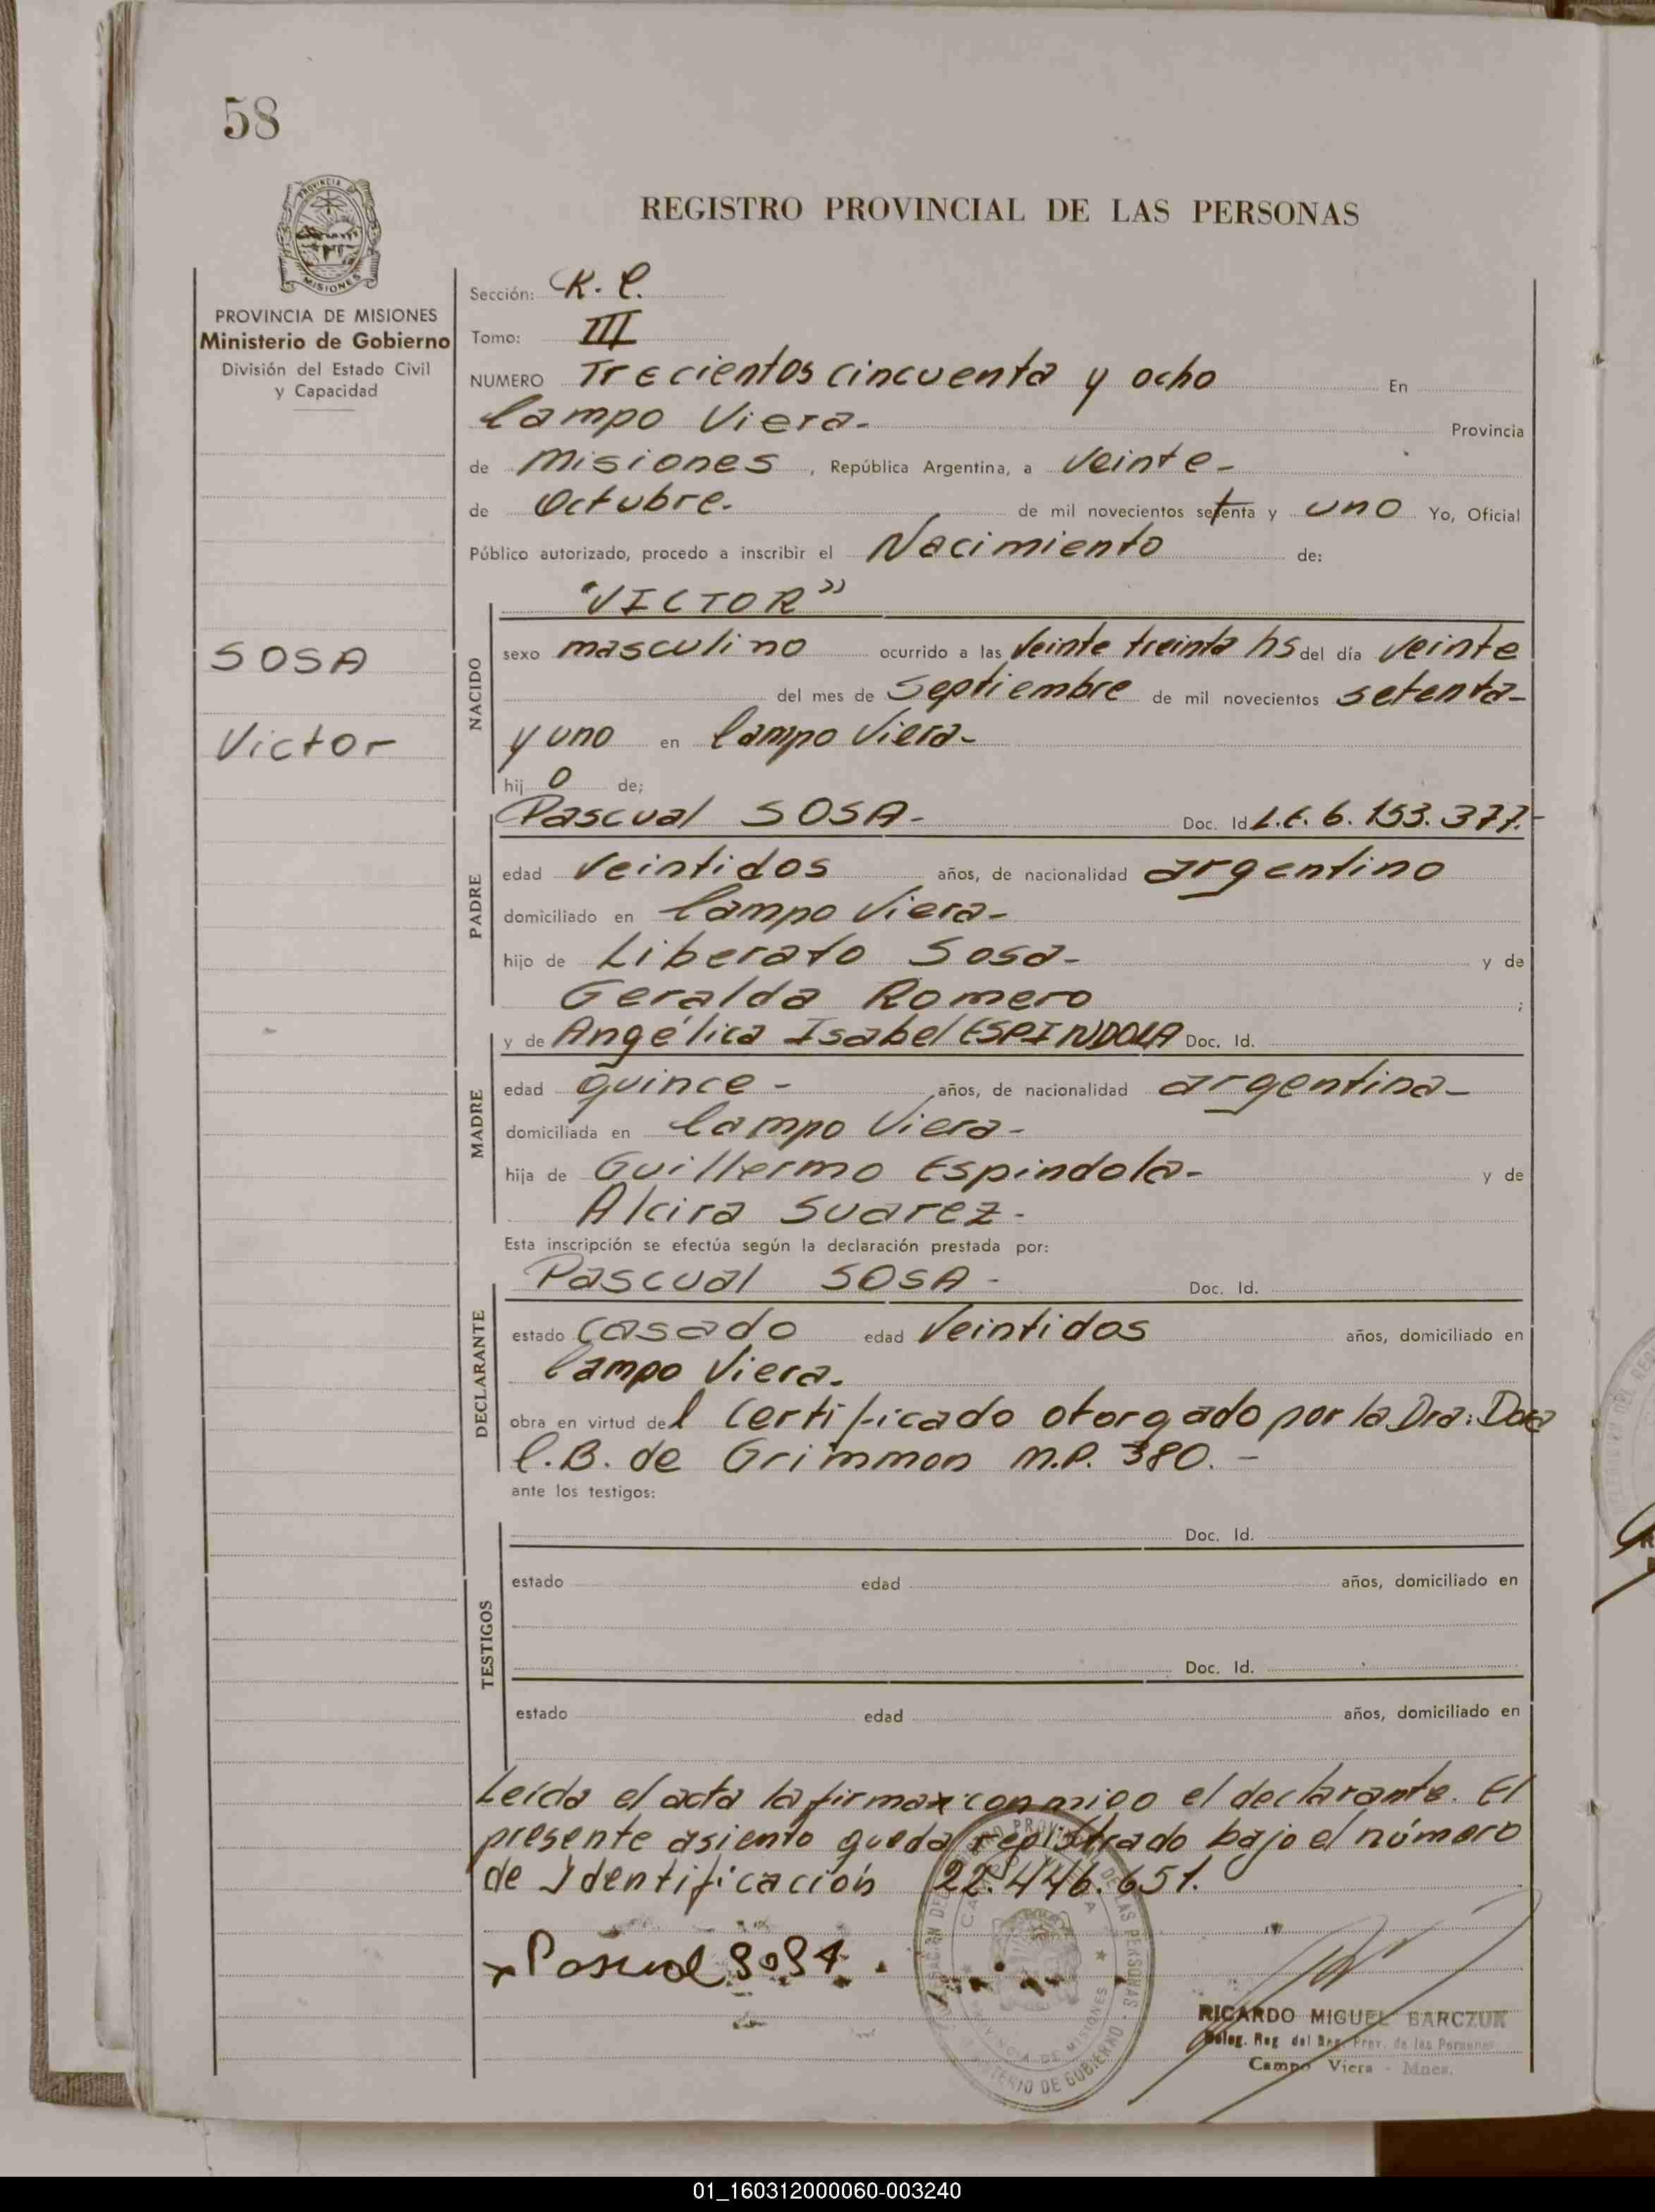 58
REGISTRO PROVINCIAL DE LAS PERSONAS
PROVINCIA DE MISIONES
Ministerio de Gobierno
División del Estado Civil
y Capacidad
SOSA
Victor
Sección: K. C.
Tomo: III
NUMERO Trecientos cincuenta y ocho En
Campo Viera- Provincia
de Misiones, República Argentina, a Veinte-
de Octubre. de mil novecientos setenta y uno Yo, Oficial
Público autorizado, procedo a inscribir el Nacimiento de:
"VICTOR"
NACIDO
sexo masculino ocurrido a las Veinte treinta hs del día veinte
del mes de Septiembre de mil novecientos setenta-
y uno en Campo Viera-
hijo de;
PADRE
Pascual SOSA- Doc. Id L.E. 6.153.377.-
edad Veintidos años, de nacionalidad argentino
domiciliado en Campo Viera-
hijo de Liberato Sosa- y de
Geralda Romero ;
MADRE
y de Angélica Isabel ESPINDOLA Doc. Id.
edad quince- años, de nacionalidad argentina-
domiciliada en Campo Viera-
hija de Guillermo Espindola- y de
Alcira Suarez-
Esta inscripción se efectúa según la declaración prestada por:
DECLARANTE
Pascual SOSA- Doc. Id.
estado casado edad Veintidos años, domiciliado en
Campo Viera.
obra en virtud del Certificado otorgado por la Dra: Dora
C.B. de Grimmon M.P. 380.-
ante los testigos:
TESTIGOS
Doc. Id.
estado edad años, domiciliado en
Doc. Id.
estado edad años, domiciliado en
Leída el acta la firma conmigo el declarante. El
presente asiento queda registrado bajo el número
de Identificación 22.446.651.
x Pascual Sosa.
RICARDO MIGUEL BARCZUK
Deleg. Reg del Reg. Prov. de las Personas
Campo Viera - Mnes.
01_160312000060-003240